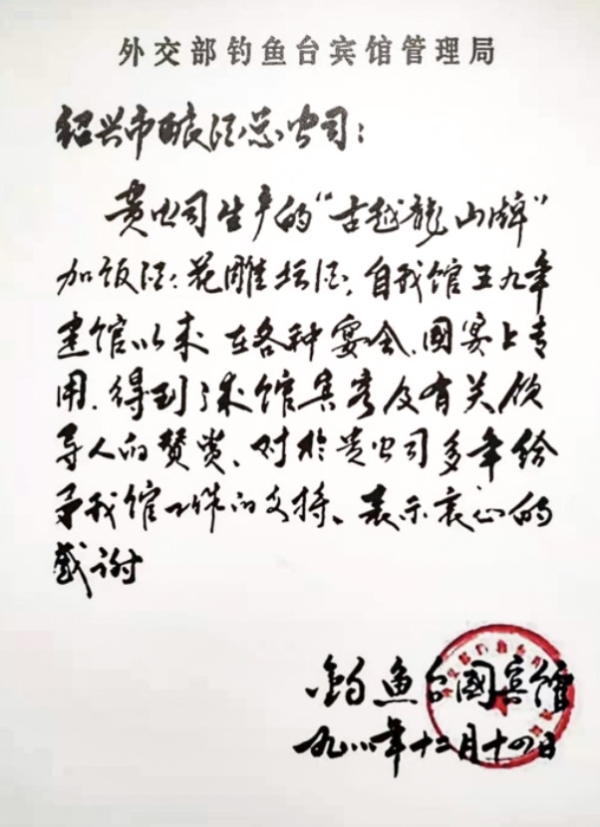 外交部钓鱼台宾馆管理局
绍兴市酿酒总公司:
贵公司生产的“古越龍山牌”
加饭酒、花雕坛酒,自我馆五九年
建馆以来在各种宴会、國宴上专
用,得到来馆宾客及有关领
导人的赞赏、对於贵公司多年给
予我馆工作的支持、表示衷心的
感谢
钓鱼台國宾馆
九八八年十二月十四日